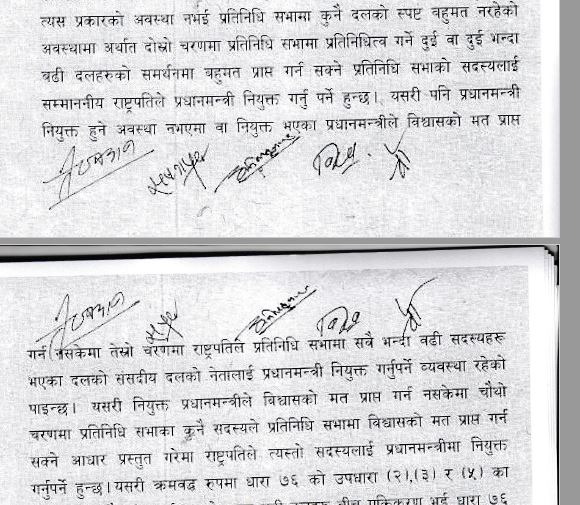 त्यस प्रकारको अवस्था नभई प्रतिनिधि सभामा कुनै दलको स्पष्ट बहुमत नरहेको
अवस्थामा अर्थात दोस्रो चरणमा प्रतिनिधि सभामा प्रतिनिधित्व गर्ने दुई वा दुई भन्दा
बढी दलहरुको समर्थनमा बहुमत प्राप्त गर्न सक्ने प्रतिनिधि सभाको सदस्यलाई
सम्माननीय राष्ट्रपतिले प्रधानमन्त्री नियुक्त गर्नु पर्ने हुन्छ। यसरी पनि प्रधानमन्त्री
नियुक्त हुने अवस्था नभएमा वा नियुक्त भएका प्रधानमन्त्रीले विश्वासको मत प्राप्त
गर्न नसकेमा तेस्रो चरणमा राष्ट्रपतिले प्रतिनिधि सभामा सबै भन्दा बढी सदस्यहरू
भएका दलको संसदीय दलको नेतालाई प्रधानमन्त्री नियुक्त गर्नुपर्ने व्यवस्था रहेको
पाइन्छ। यसरी नियुक्त प्रधानमन्त्रीले विश्वासको मत प्राप्त गर्न नसकेमा चौथो
चरणमा प्रतिनिधि सभाका कुनै सदस्यले प्रतिनिधि सभामा विश्वासको मत प्राप्त गर्न
सक्ने आधार प्रस्तुत गरेमा राष्ट्रपतिले त्यस्तो सदस्यलाई प्रधानमन्त्रीमा नियुक्त
गर्नुपर्ने हुन्छ।यसरी क्रमवद्ध रुपमा धारा ७६ को उपधारा (२),(३) र (५) का
धारा ७६